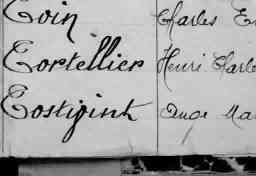 Coin Charles E
Cortellier Henri Charle
Costigint Ange Ma